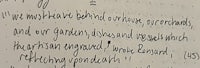 "'we must leave behind our house, our orchards,
and our gardens, dishes and vessels which
the artisan engraved,' wrote Ronsard,
reflecting upon death" (45)